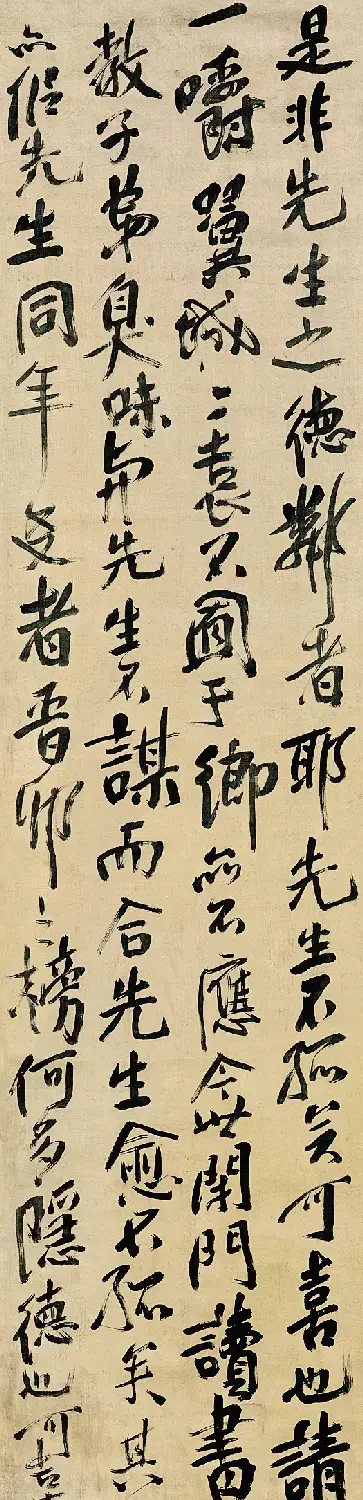 是非先生之德鄰者耶先生不孤矣可喜也請
一嚼翼城二袁不面于鄉亦不應今世閑門讀書
教子弟臭味與先生不謀而合先生愈不孤矣其
亦侶先生同年友者晉卯之榜何多隱德也可喜